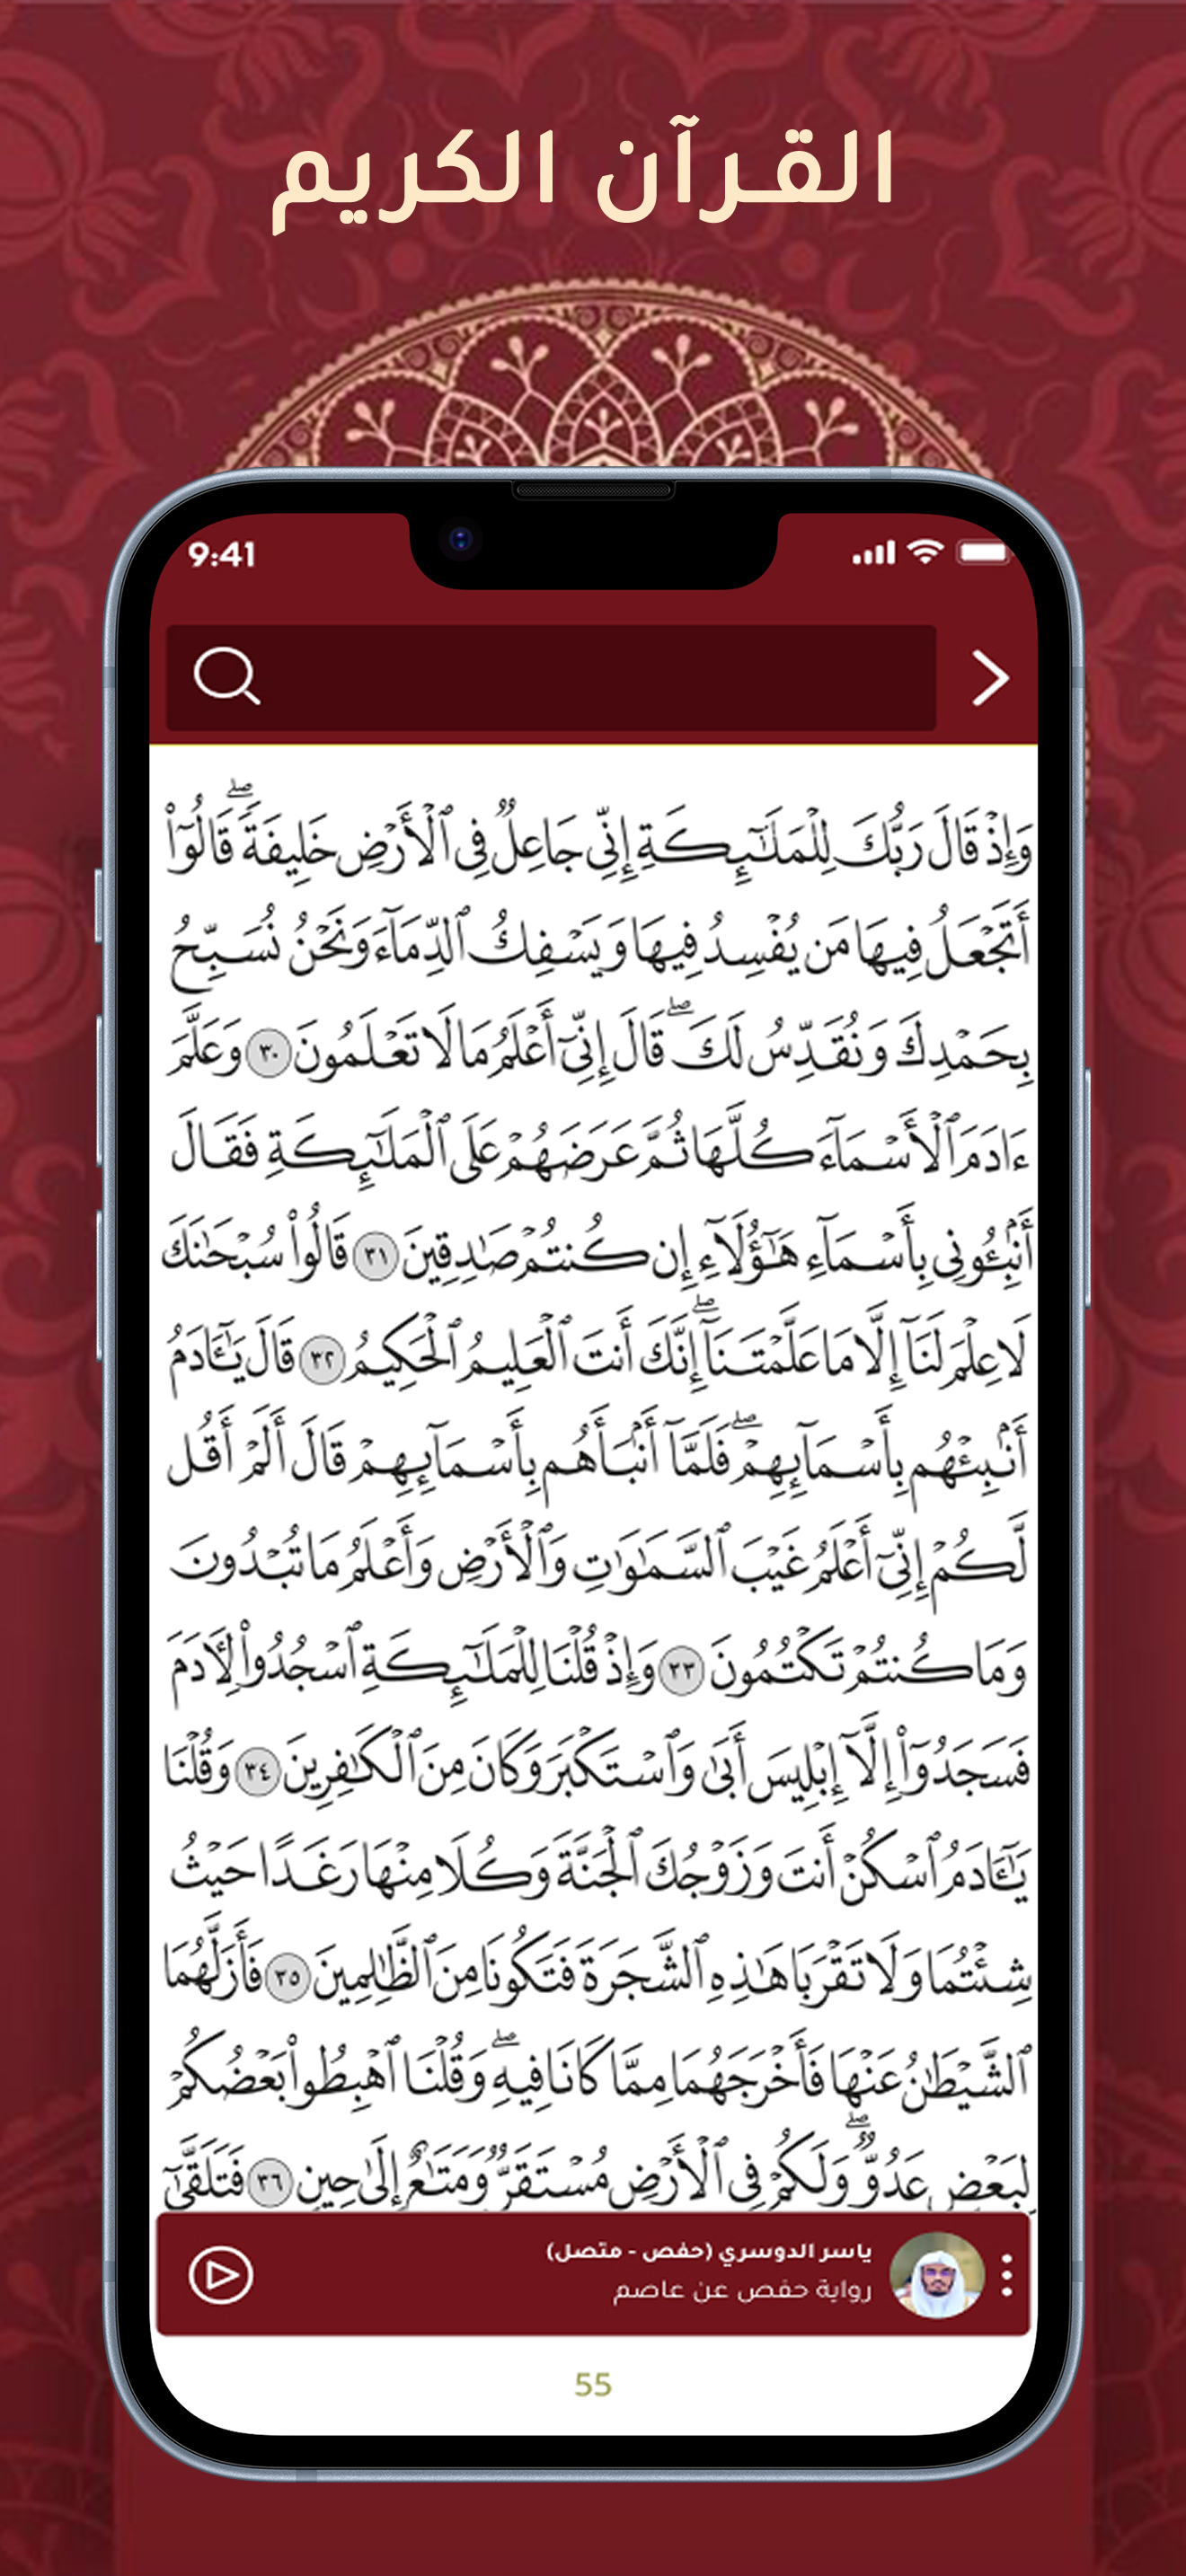 القرآن الكريم
9:41
وَإِذْ قَالَ رَبُّكَ لِلْمَلَـٰٓئِكَةِ إِنِّى جَاعِلٌ فِى ٱلْأَرْضِ خَلِيفَةً ۖ قَالُوٓا۟
أَتَجْعَلُ فِيهَا مَن يُفْسِدُ فِيهَا وَيَسْفِكُ ٱلدِّمَآءَ وَنَحْنُ نُسَبِّحُ
بِحَمْدِكَ وَنُقَدِّسُ لَكَ ۖ قَالَ إِنِّىٓ أَعْلَمُ مَا لَا تَعْلَمُونَ ٣٠ وَعَلَّمَ
ءَادَمَ ٱلْأَسْمَآءَ كُلَّهَا ثُمَّ عَرَضَهُمْ عَلَى ٱلْمَلَـٰٓئِكَةِ فَقَالَ
أَنۢبِـُٔونِى بِأَسْمَآءِ هَـٰٓؤُلَآءِ إِن كُنتُمْ صَـٰدِقِينَ ٣١ قَالُوا۟ سُبْحَـٰنَكَ
لَا عِلْمَ لَنَآ إِلَّا مَا عَلَّمْتَنَآ ۖ إِنَّكَ أَنتَ ٱلْعَلِيمُ ٱلْحَكِيمُ ٣٢ قَالَ يَـٰٓـَٔادَمُ
أَنۢبِئْهُم بِأَسْمَآئِهِمْ ۖ فَلَمَّآ أَنۢبَأَهُم بِأَسْمَآئِهِمْ قَالَ أَلَمْ أَقُل
لَّكُمْ إِنِّىٓ أَعْلَمُ غَيْبَ ٱلسَّمَـٰوَٰتِ وَٱلْأَرْضِ وَأَعْلَمُ مَا تُبْدُونَ
وَمَا كُنتُمْ تَكْتُمُونَ ٣٣ وَإِذْ قُلْنَا لِلْمَلَـٰٓئِكَةِ ٱسْجُدُوا۟ لِـَٔادَمَ
فَسَجَدُوٓا۟ إِلَّآ إِبْلِيسَ أَبَىٰ وَٱسْتَكْبَرَ وَكَانَ مِنَ ٱلْكَـٰفِرِينَ ٣٤ وَقُلْنَا
يَـٰٓـَٔادَمُ ٱسْكُنْ أَنتَ وَزَوْجُكَ ٱلْجَنَّةَ وَكُلَا مِنْهَا رَغَدًا حَيْثُ
شِئْتُمَا وَلَا تَقْرَبَا هَـٰذِهِ ٱلشَّجَرَةَ فَتَكُونَا مِنَ ٱلظَّـٰلِمِينَ ٣٥ فَأَزَلَّهُمَا
ٱلشَّيْطَـٰنُ عَنْهَا فَأَخْرَجَهُمَا مِمَّا كَانَا فِيهِ ۖ وَقُلْنَا ٱهْبِطُوا۟ بَعْضُكُمْ
لِبَعْضٍ عَدُوٌّ ۖ وَلَكُمْ فِى ٱلْأَرْضِ مُسْتَقَرٌّ وَمَتَـٰعٌ إِلَىٰ حِينٍ ٣٦ فَتَلَقَّىٰٓ
ياسر الدوسري (حفص - متصل)
رواية حفص عن عاصم
55